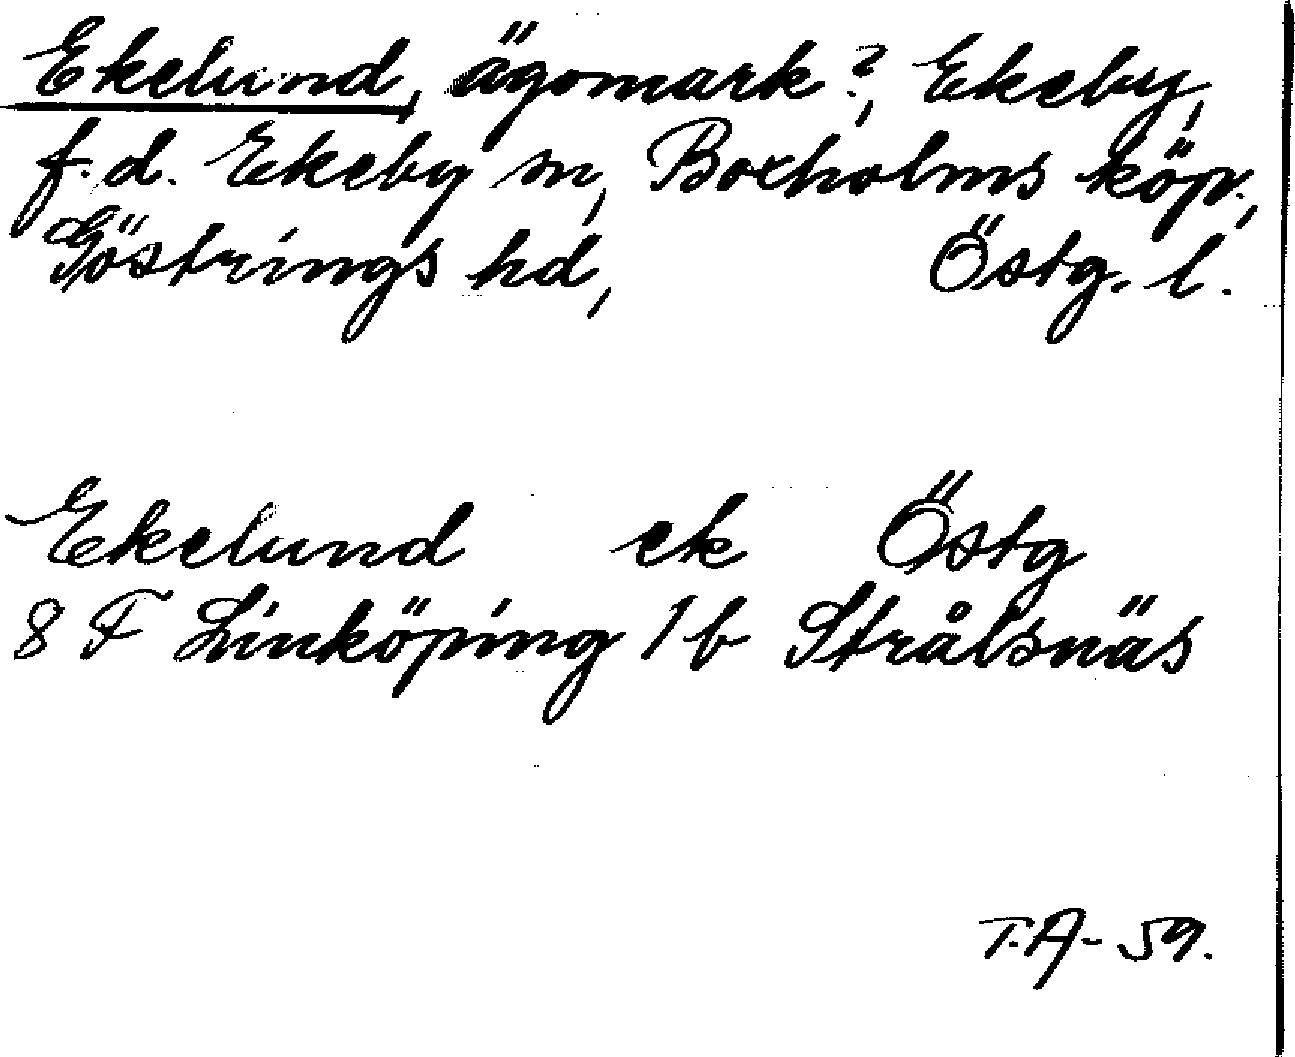 Ekelund, ägomark?, Ekeby,
f.d. Ekeby sn, Boxholms köp.,
Göstrings hd, Östg. l.
Ekelund ek Östg
8 F Linköping 1 b Strålsnäs
T.A- 59.